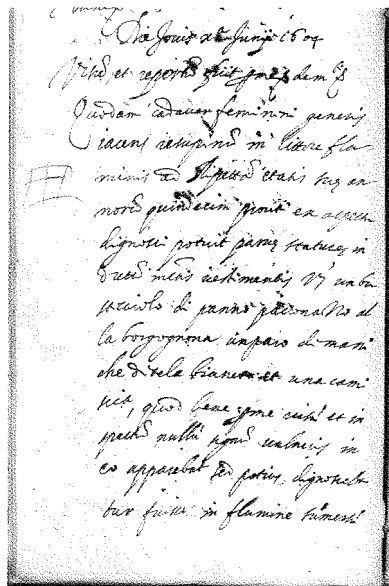 Die Jovis x Junij 1604
Visũ, et repertũ fuit p me dem
Quoddam cadaver feminini generis
iacens resupinũ in littore flu
minis ad Ripettã etatis suę an
norũ quindecim prout ex aspectu
dignosci potuit parvę staturę in
dutũ vestimentis vz un bu
sticciolo di panno pavonazzo al
la borgognona un paro di mani
che di tela bianca et una cami
scia, quod bene p me visũ et in
spectũ nullũ signũ vulneris in
eo apparebat sed potius dignosceba
tur fuisse in flumine